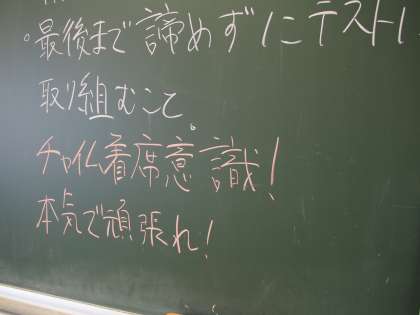 。最後まで諦めずにテストに
取り組むこと。
チャイム着席意識!
本気で頑張れ!